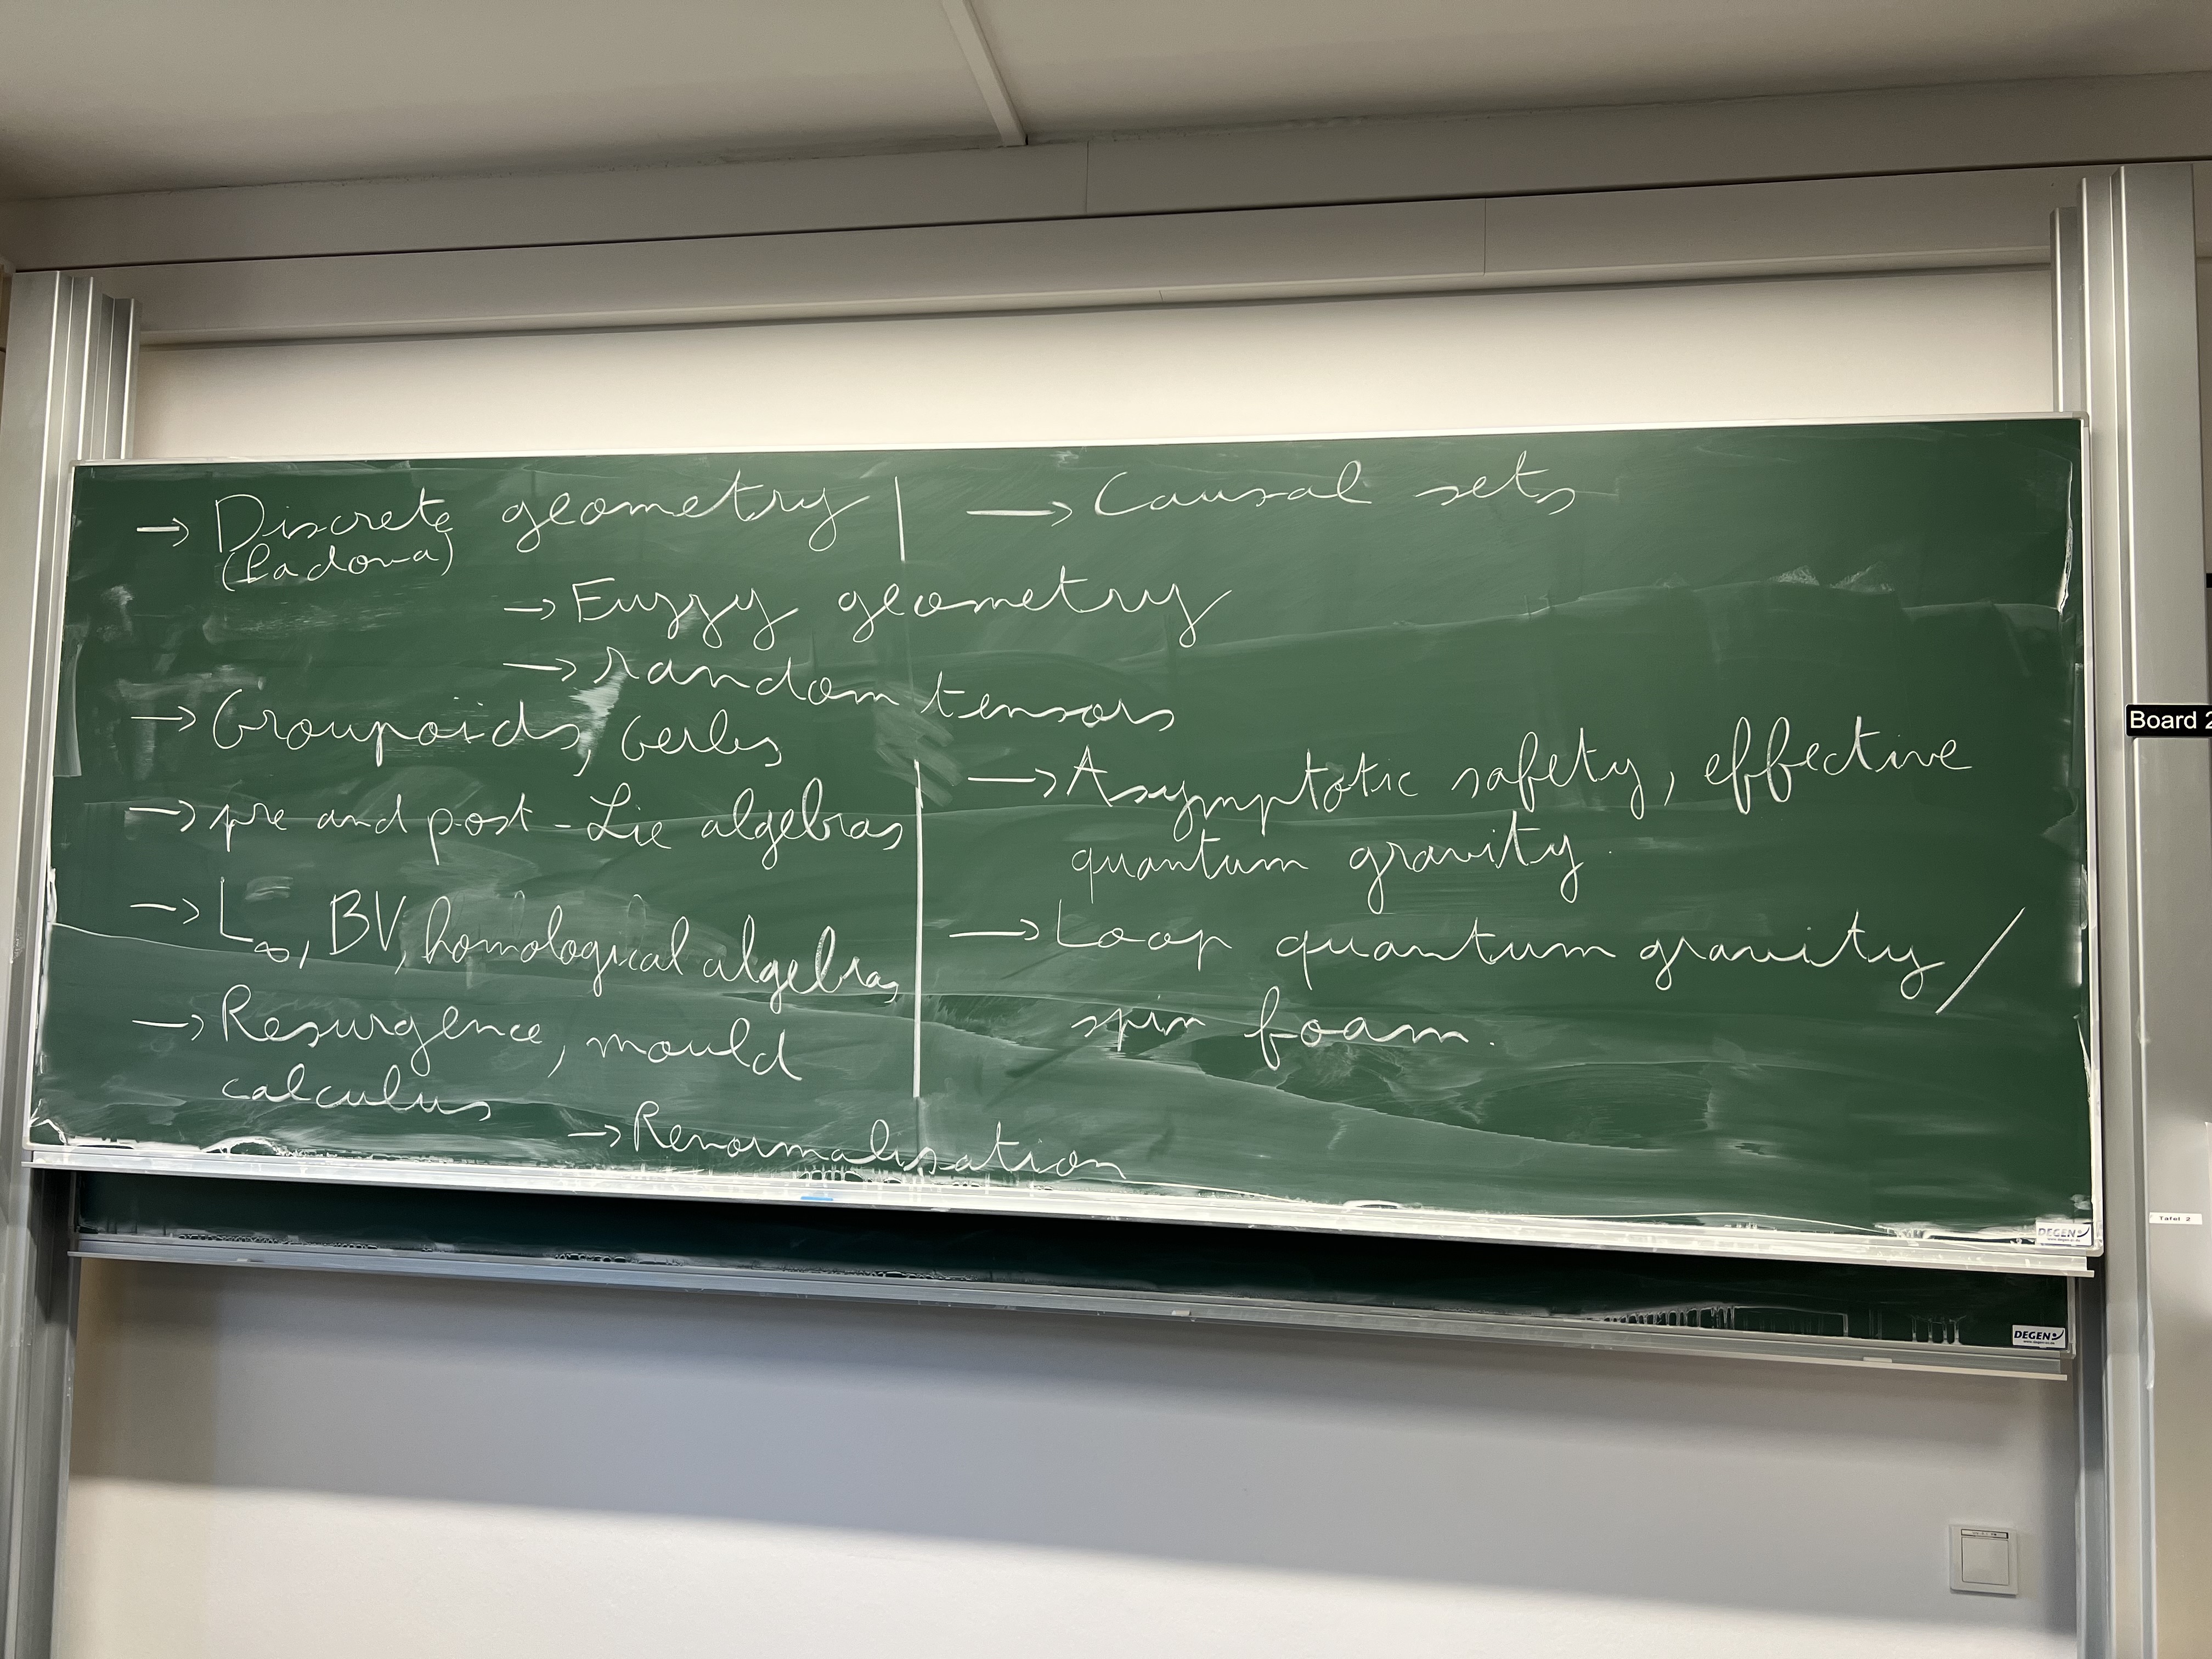 → Discrete geometry
(Padova)
→ Causal sets
→ Fuzzy geometry
→ random tensors
→ Groupoids, Gerbes
→ pre and post-Lie algebras
→ L∞, BV, homological algebra,
→ Resurgence, mould
calculus
→ Asymptotic safety, effective
quantum gravity
→ Loop quantum gravity/
spin foam.
→ Renormalisation
Board 2
Tafel 2
DEGEN
DEGEN